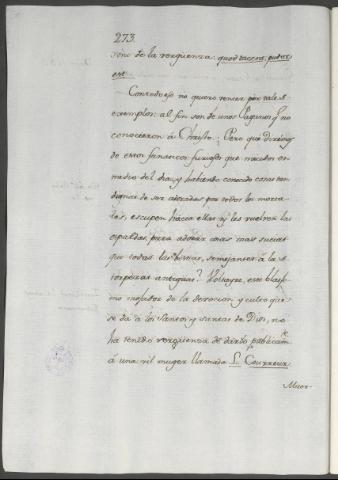 273.
sino de la verguenza: quod tacens putor
est.
Con todo eso no quiero vencer por tales
exemplos: al fin son de unos Paganos q.e no
conocieron à Christo.; Pero que dirémos
de esos fanaticos furiosos que nacidos en
medio del dia, y habiendo conocido cosas
dignas de ser adoradas por todos los morta-
les, escupen hácia ellas, y les vuelven las
espaldas, para adorar cosas mas sucias
que todas las semejantes à las
torpezas antiguas? Voltayre, este blasfe-
mo mofador de la devocion, y culto que
se dá à los Santos y Santas de Dios, no
ha tenido verguenza de darlo publicam.te
à una vil muger llamada L. Couvreur
Muer-